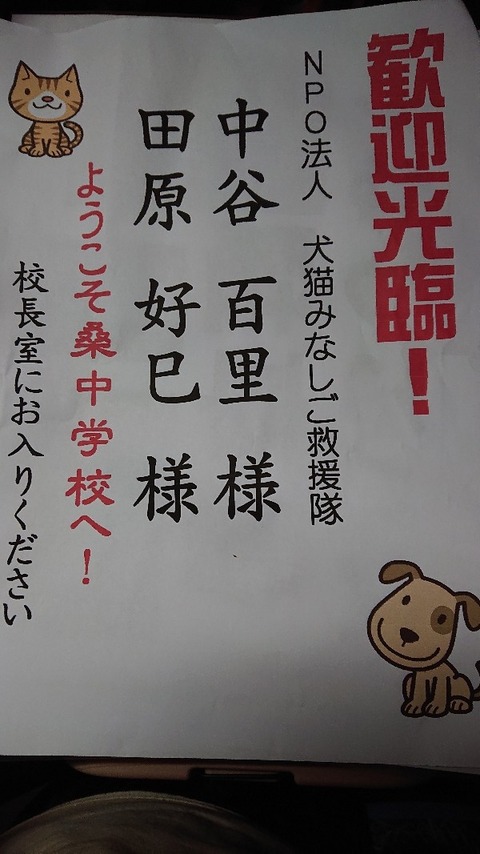 歓迎光臨！
NPO法人 犬猫みなしご救援隊
中谷 百里 様
田原 好巳 様
ようこそ桑中学校へ！
校長室にお入りください